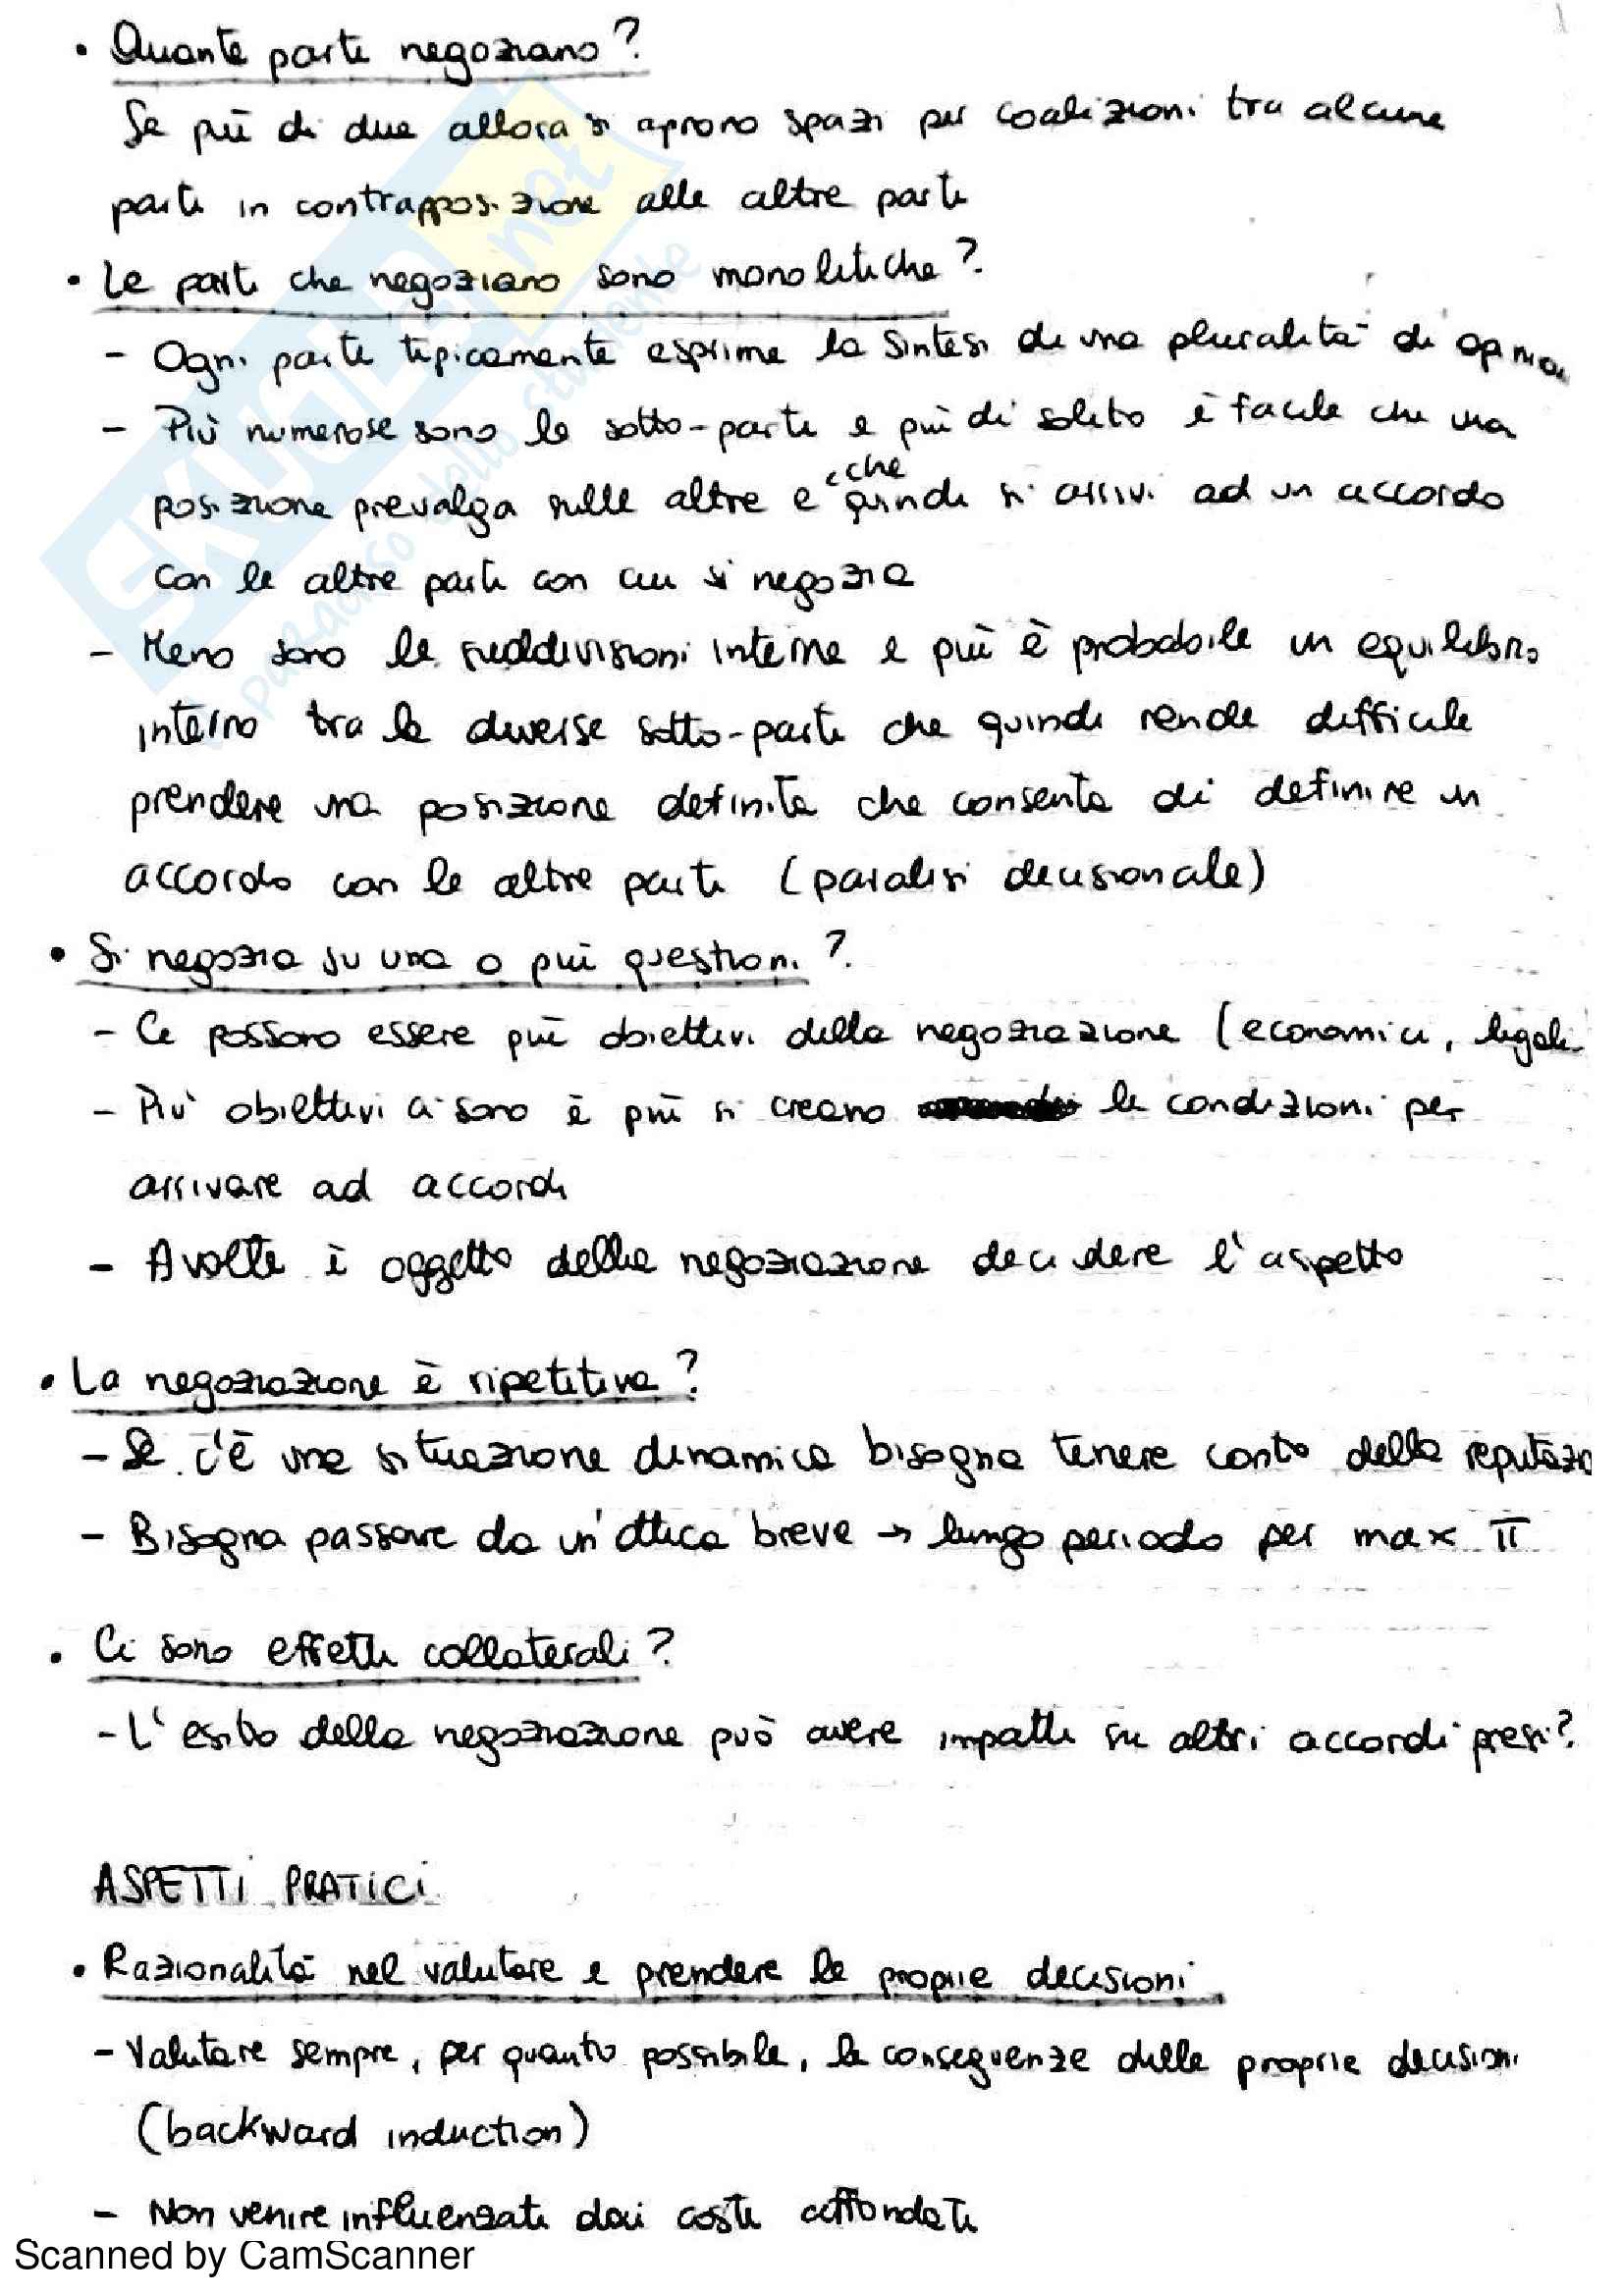 • Quante parti negoziano?
Se più di due allora si aprono spazi per coalizioni tra alcune
parti in contrapposizione alle altre parti
• Le parti che negoziano sono monolitiche?
- Ogni parte tipicamente esprime la sintesi di una pluralità di opinioi
- Più numerose sono le sotto-parti e più di solito è facile che una
che
posizione prevalga sulle altre e quindi si arrivi ad un accordo
con le altre parti con cui si negozia
- Meno sono le suddivisioni interne e più è probabile un equilibrio
interno tra le diverse sotto-parti che quindi rende difficile
prendere una posizione definita che consenta di definire un
accordo con le altre parti (paralisi decisionale)
• Si negozia su una o più questioni?
- Ci possono essere più obiettivi della negoziazione (economici, legali
- Più obiettivi ci sono è più si creano le condizioni per
arrivare ad accordi
- A volte è oggetto della negoziazione decidere l'aspetto
• La negoziazione è ripetitiva?
- Se c'è una situazione dinamica bisogna tenere conto della reputazio
- Bisogna passare da un'ottica breve → lungo periodo per max π
• Ci sono effetti collaterali?
- L'esito della negoziazione può avere impatti su altri accordi presi?
ASPETTI PRATICI
• Razionalità nel valutare e prendere le proprie decisioni
- Valutare sempre, per quanto possibile, le conseguenze delle proprie decisioni
(backward induction)
- Non venire influenzati dai costi affondati
Scanned by CamScanner
SKUOLA.net
il paradiso dello studente